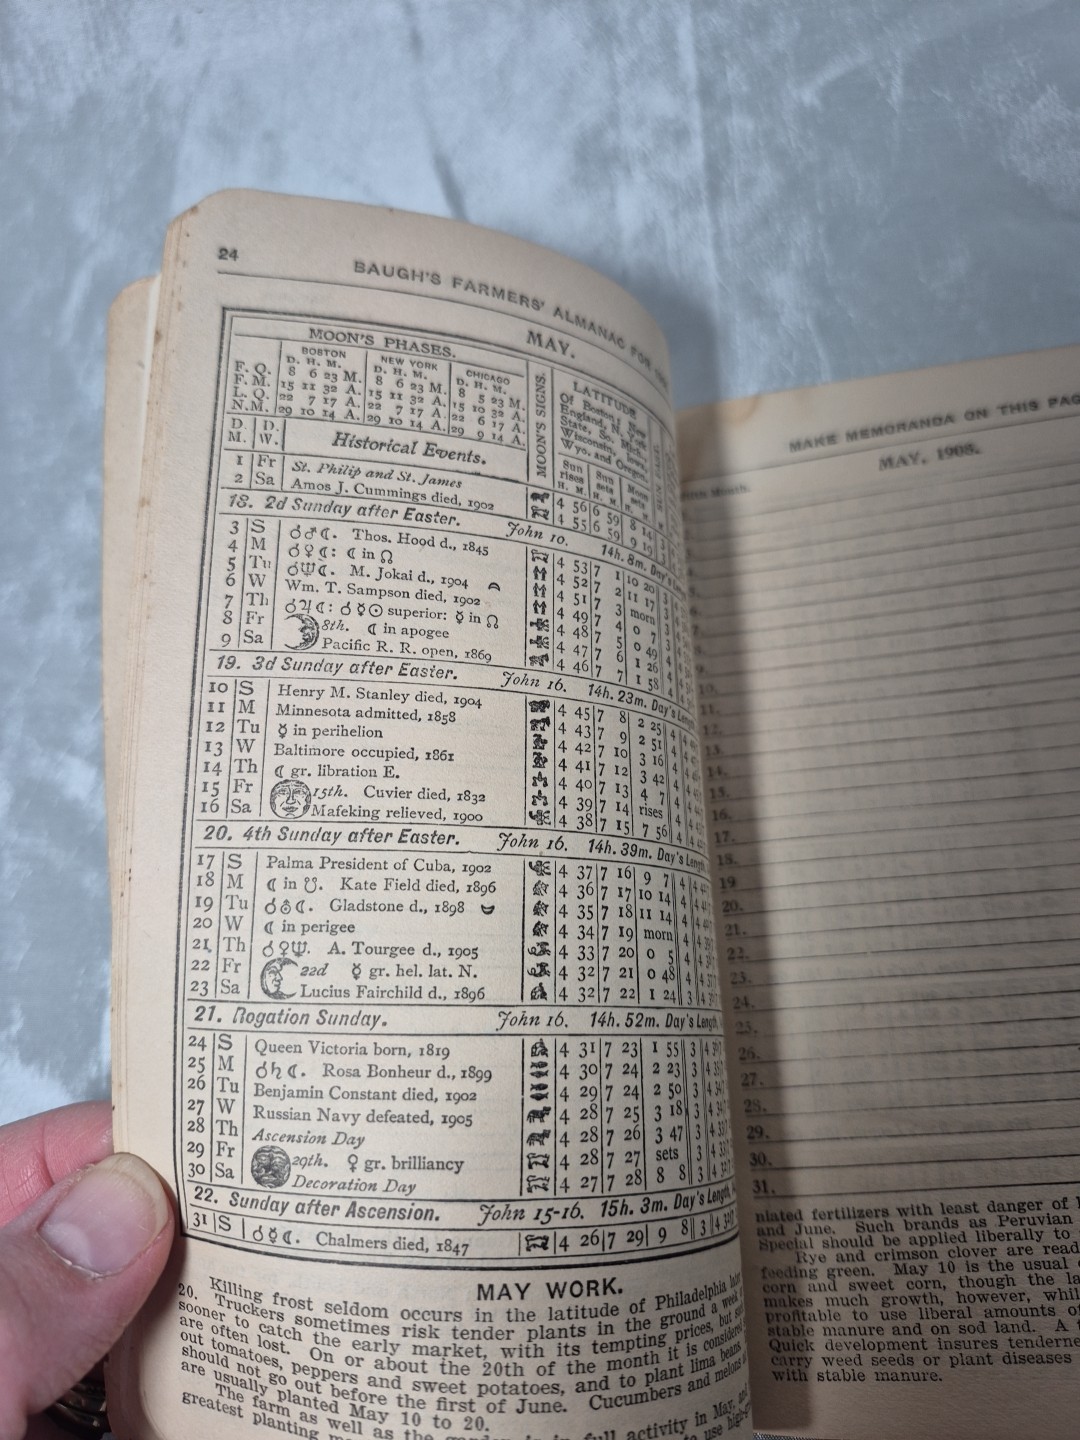 24
BAUGH'S FARMERS' ALMANAC FOR
MAY.
MOON'S PHASES.
BOSTON NEW YORK CHICAGO
D. H. M. D. H. M. D. H. M.
F. Q. 8 6 23 M. 8 6 23 M. 8 5 23 M.
F. M. 15 11 32 A. 15 11 32 A. 15 10 32 A.
L. Q. 22 7 17 A. 22 7 17 A. 22 6 17 A.
N. M. 29 10 14 A. 29 10 14 A. 29 9 14 A.
MOON'S SIGNS.
LATITUDE
Of Boston, New
England, N. York
State, So. Mich.,
Wisconsin, Iowa,
Wyo. and Oregon.
D. M. D. W. Historical Events.
Sun rises Sun sets Moon sets
H. M. H. M. H. M.
1 Fr St. Philip and St. James 4 56 6 59 8 14
2 Sa Amos J. Cummings died, 1902 4 55 6 59 9 19
18. 2d Sunday after Easter. John 10. 14h. 8m. Day's
3 S ☌♂☾. Thos. Hood d., 1845 4 53 7 1 10 20
4 M ☌♀☾: ☾ in ☊ 4 52 7 2 11 17
5 Tu ☌♆☾. M. Jokai d., 1904 4 51 7 3 morn
6 W Wm. T. Sampson died, 1902 4 49 7 4 0 7
7 Th ☌♃☾: ☌☿☉ superior: ☿ in ☊ 4 48 7 5 0 49
8 Fr 8th. ☾ in apogee 4 47 7 6 1 26
9 Sa Pacific R. R. open, 1869 4 46 7 7 1 58
19. 3d Sunday after Easter. John 16. 14h. 23m. Day's Length
10 S Henry M. Stanley died, 1904 4 45 7 8 2 25 4
11 M Minnesota admitted, 1858 4 43 7 9 2 51 4
12 Tu ☿ in perihelion 4 42 7 10 3 16 4
13 W Baltimore occupied, 1861 4 41 7 12 3 42 4
14 Th ☾ gr. libration E. 4 40 7 13 4 7 4
15 Fr 15th. Cuvier died, 1832 4 39 7 14 rises 4
16 Sa Mafeking relieved, 1900 4 38 7 15 7 56 4
20. 4th Sunday after Easter. John 16. 14h. 39m. Day's Length
17 S Palma President of Cuba, 1902 4 37 7 16 9 7 4
18 M ☾ in ☋. Kate Field died, 1896 4 36 7 17 10 14 4
19 Tu ☌⛢☾. Gladstone d., 1898 4 35 7 18 11 14 4
20 W ☾ in perigee 4 34 7 19 morn 4
21 Th ☌♀♆. A. Tourgee d., 1905 4 33 7 20 0 5 4
22 Fr 22d ☿ gr. hel. lat. N. 4 32 7 21 0 48 4
23 Sa Lucius Fairchild d., 1896 4 32 7 22 1 24 3
21. Rogation Sunday. John 16. 14h. 52m. Day's Length,
24 S Queen Victoria born, 1819 4 31 7 23 1 55 3
25 M ☌♄☾. Rosa Bonheur d., 1899 4 30 7 24 2 23 3
26 Tu Benjamin Constant died, 1902 4 29 7 24 2 50 3
27 W Russian Navy defeated, 1905 4 28 7 25 3 18 3
28 Th Ascension Day 4 28 7 26 3 47 3
29 Fr 29th. ♀ gr. brilliancy 4 28 7 27 sets 3
30 Sa Decoration Day 4 27 7 28 8 8 3
22. Sunday after Ascension. John 15-16. 15h. 3m. Day's Length,
31 S ☌☿☾. Chalmers died, 1847 4 26 7 29 9 8 3
MAY WORK.
Killing frost seldom occurs in the latitude of Philadelphia later
20. Truckers sometimes risk tender plants in the ground a week
sooner to catch the early market, with its tempting prices, but
are often lost. On or about the 20th of the month it is considered
out tomatoes, peppers and sweet potatoes, and to plant lima beans
should not go out before the first of June. Cucumbers and melons
are usually planted May 10 to 20.
The farm as well as the garden is in full activity in May, and
greatest planting to use
MAKE MEMORANDA ON THIS PAG
MAY, 1908.
Month.
10.
11.
12.
13.
14.
15.
16.
17.
18.
19
20.
21.
22.
23.
24.
25.
26.
27.
28.
29.
30.
31.
niated fertilizers with least danger of
and June. Such brands as Peruvian
Special should be applied liberally to
Rye and crimson clover are read
feeding green. May 10 is the usual
corn and sweet corn, though the la
makes much growth, however, whil
profitable to use liberal amounts of
stable manure and on sod land. A
Quick development insures tenderne
carry weed seeds or plant diseases
with stable manure.